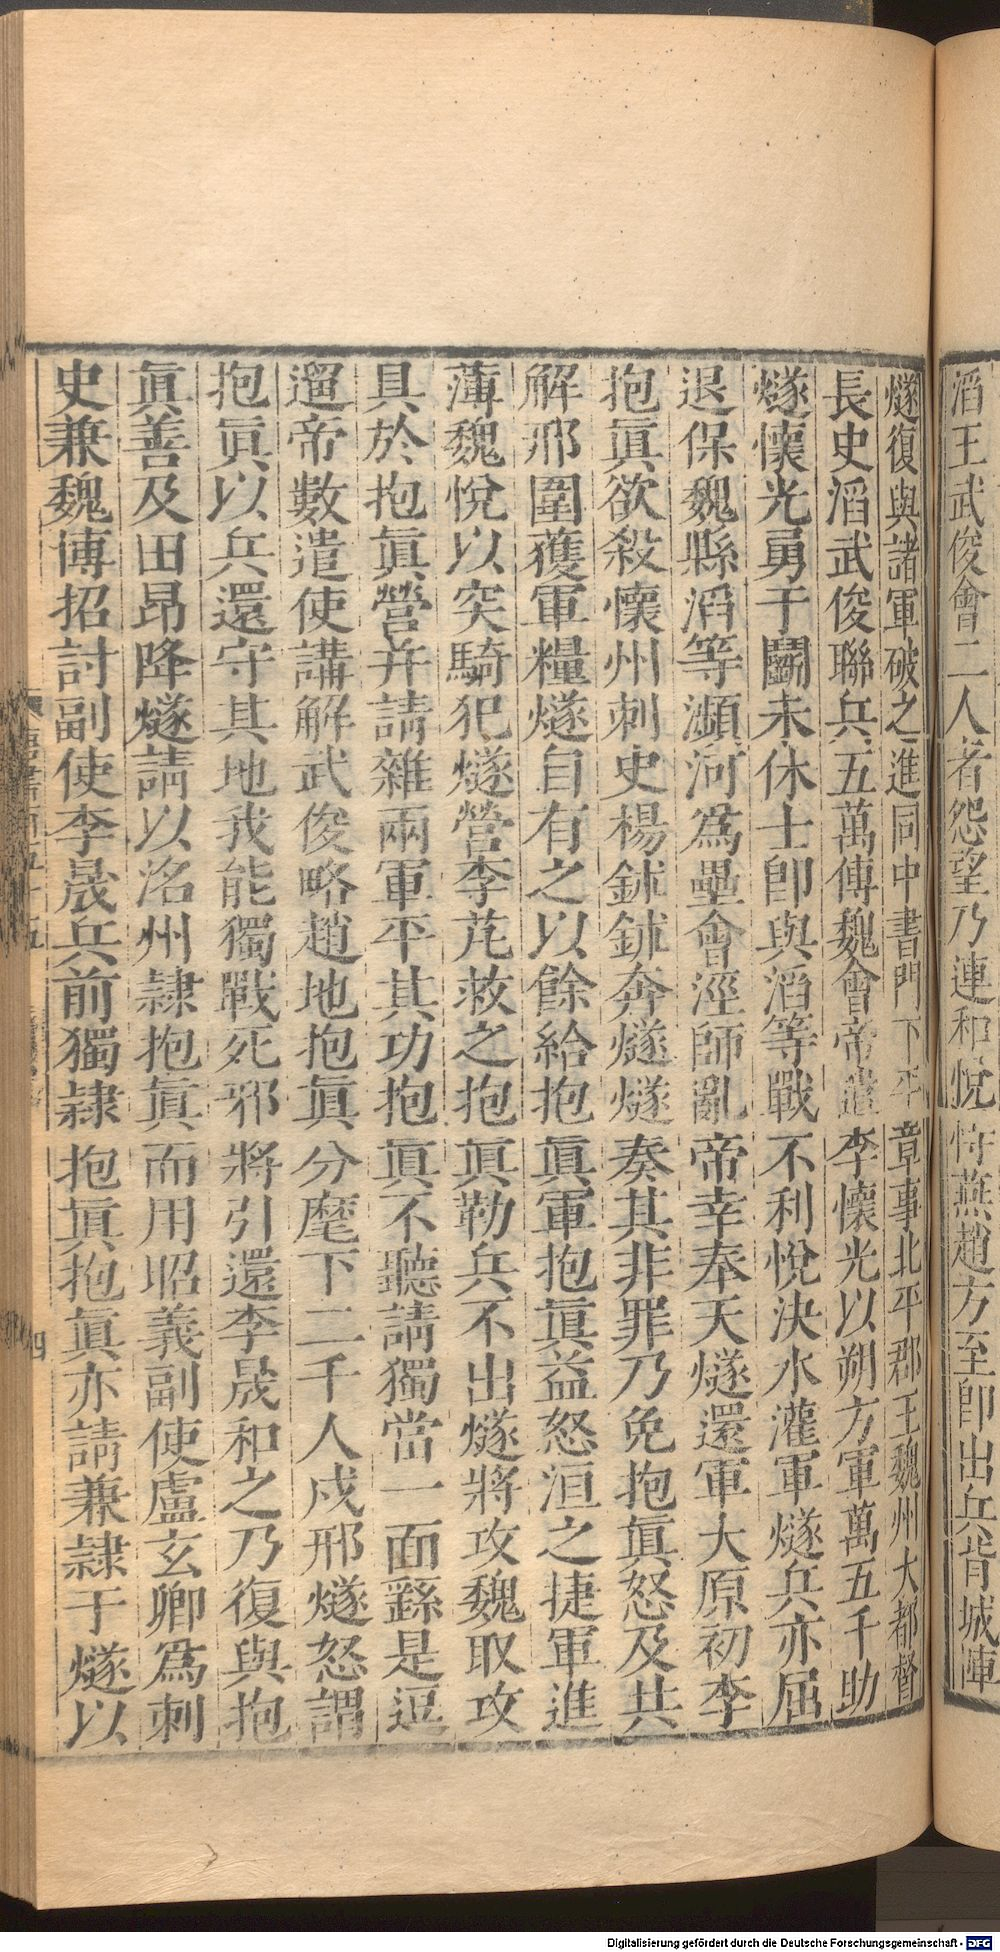 滔王武俊會二人者怨望乃連和悅恃燕趙方至卽出兵背城陣
燧復與諸軍破之進同中書門下平章事北平郡王魏州大都督
長史滔武俊聯兵五萬傳魏會帝遣李懷光以朔方軍萬五千助
燧懷光勇于鬭未休士卽與滔等戰不利悅決水灌軍燧兵亦屈
退保魏縣滔等瀕河爲壘會涇師亂帝幸奉天燧還軍大原初李
抱眞欲殺懷州刺史楊鉥鉥奔燧燧奏其非罪乃免抱眞怒及共
解邢圍獲軍糧燧自有之以餘給抱眞軍抱眞益怒洹之捷軍進
薄魏悅以突騎犯燧營李芃救之抱眞勒兵不出燧將攻魏取攻
具於抱眞營幷請雜兩軍平其功抱眞不聽請獨當一面繇是逗
遛帝數遣使講解武俊略趙地抱眞分麾下二千人戍邢燧怒謂
抱眞以兵還守其地我能獨戰死邪將引還李晟和之乃復與抱
眞善及田昂降燧請以洺州隷抱眞而用昭義副使盧玄卿爲刺
史兼魏博招討副使李晟兵前獨隷抱眞抱眞亦請兼隷于燧以
四
Digitalisierung gefördert durch die Deutsche Forschungsgemeinschaft - DFG